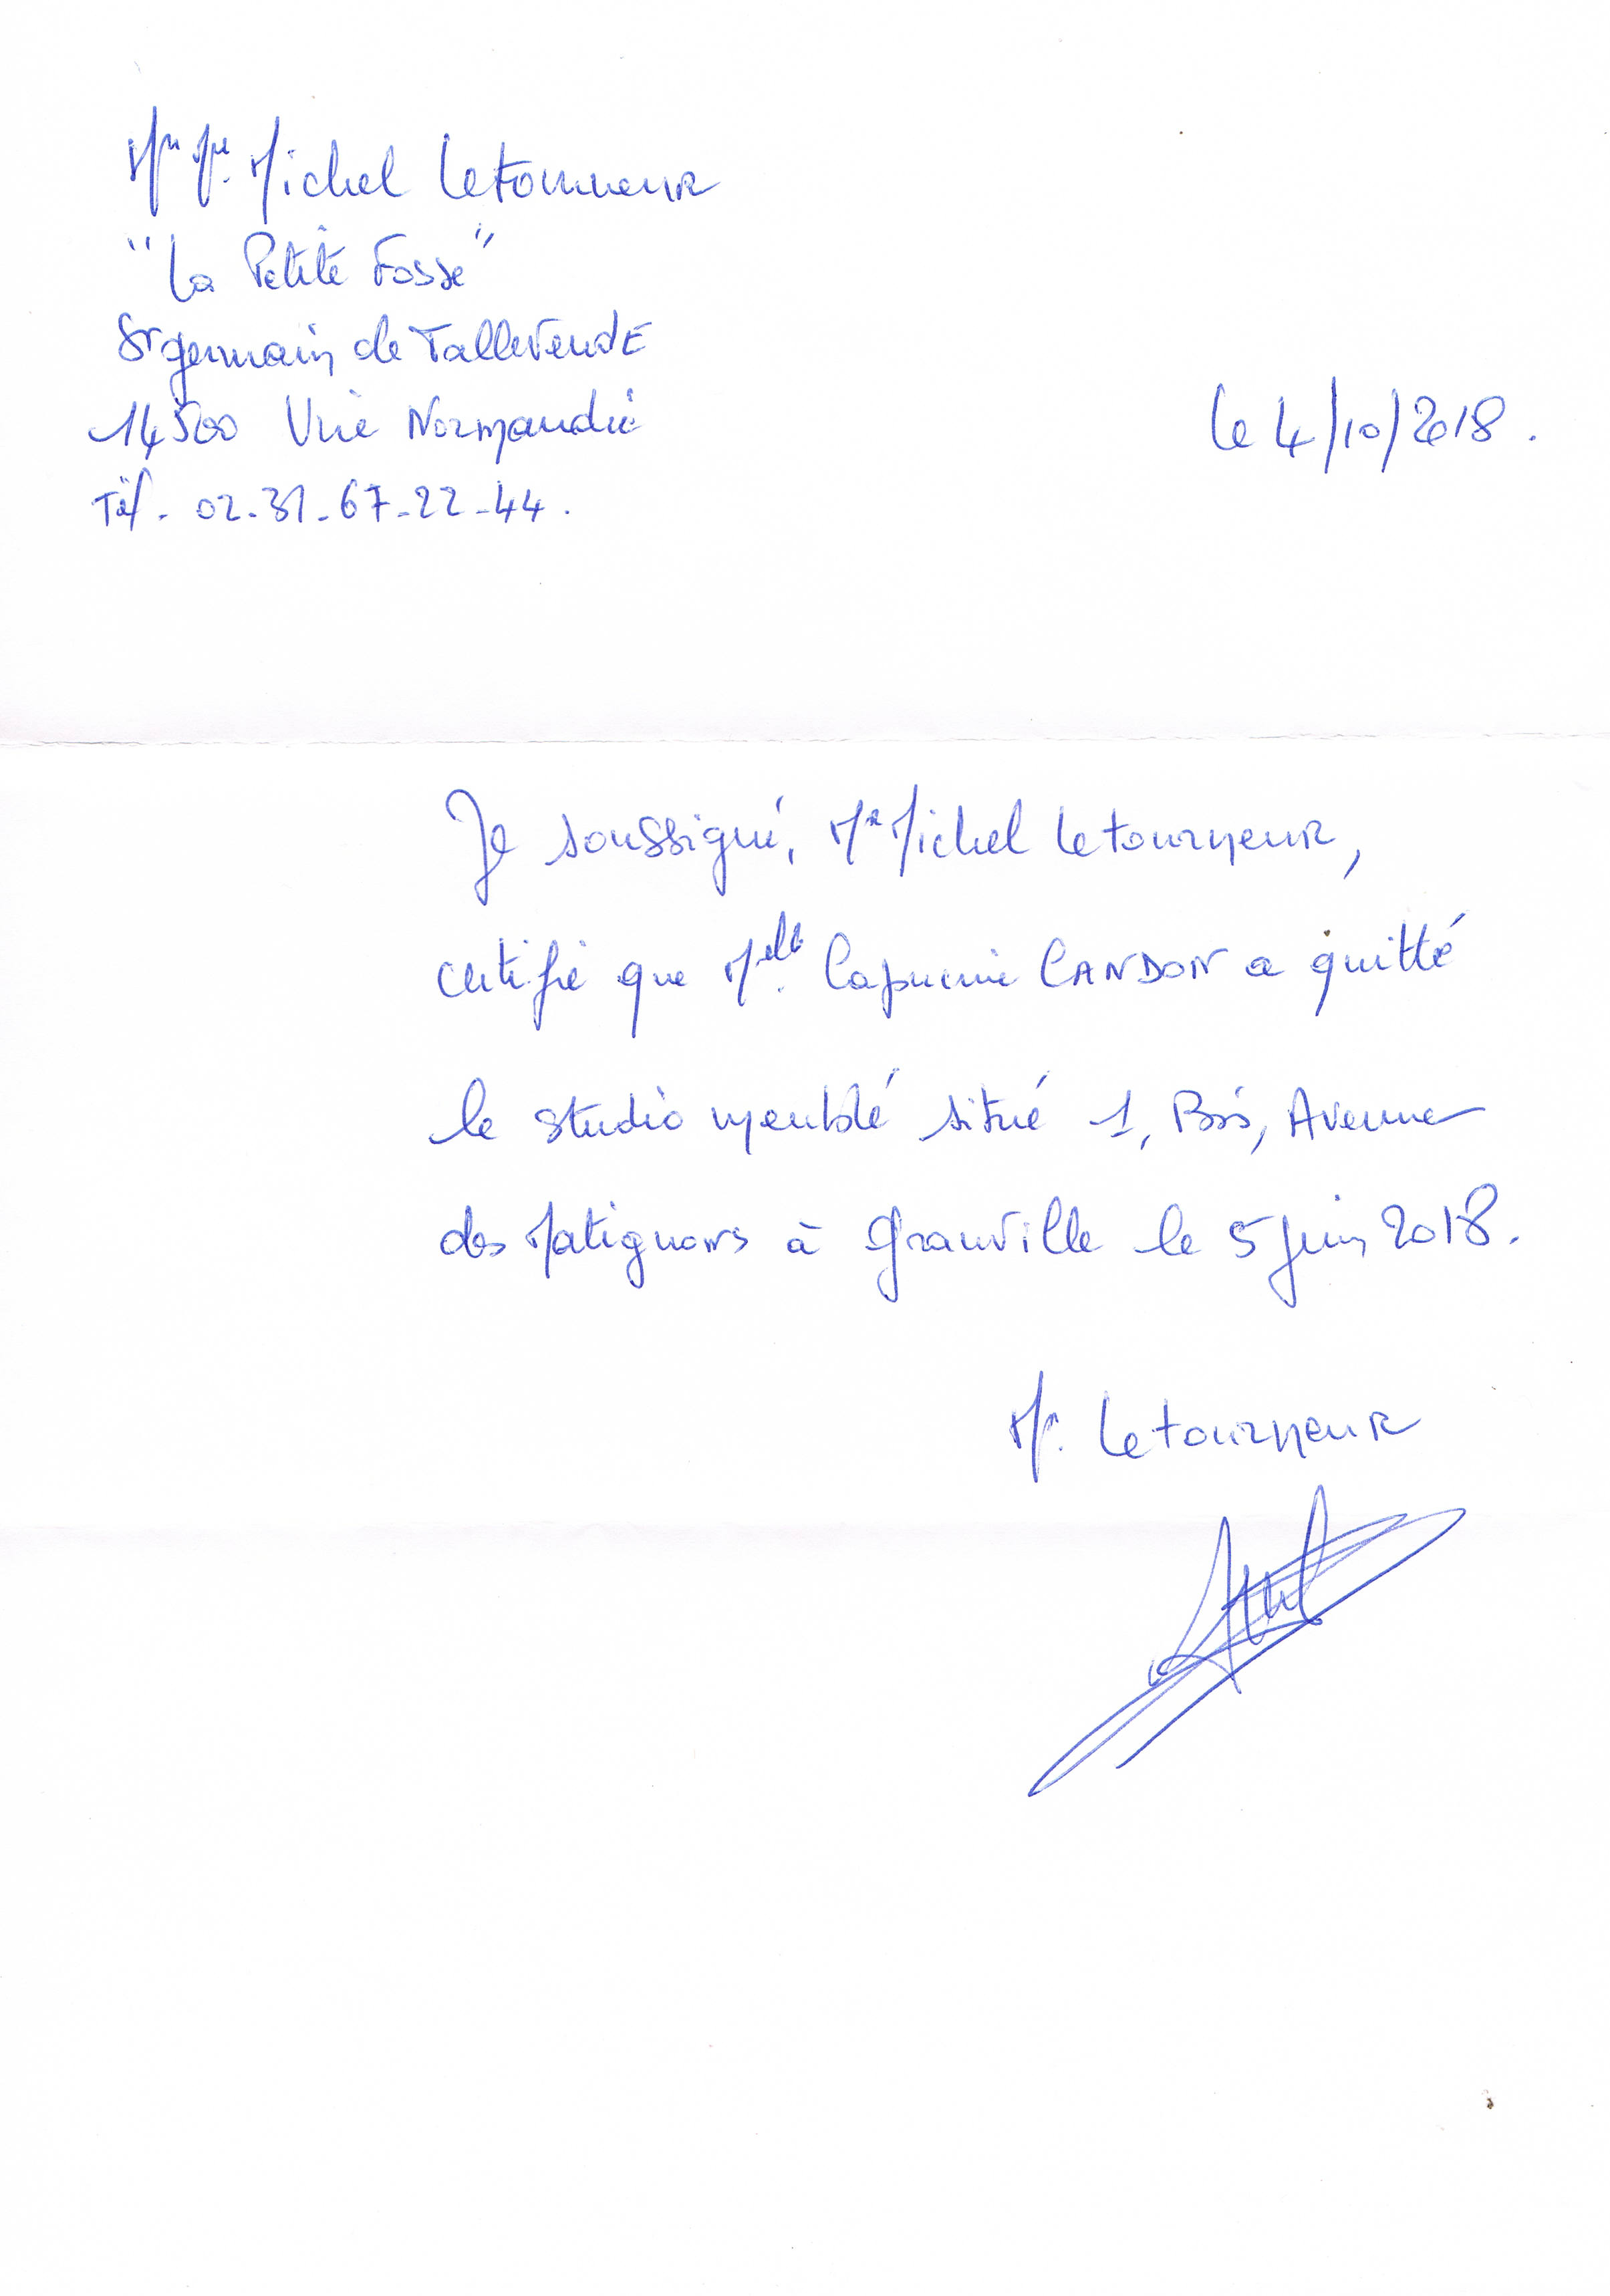 Mr Me. Michel Letourneur
"La Petite Fosse"
St germain de Tallevende
14500 Vire Normandie
le 4/10/2018.
Tél. 02-31-67-22-44.
Je soussigné, Mr Michel Letourneur,
certifie que Melle Capucine CANDON a quitté
le studio meublé situé 1, Bis, Avenue
des Matignons à Granville le 5 juin 2018.
M. Letourneur